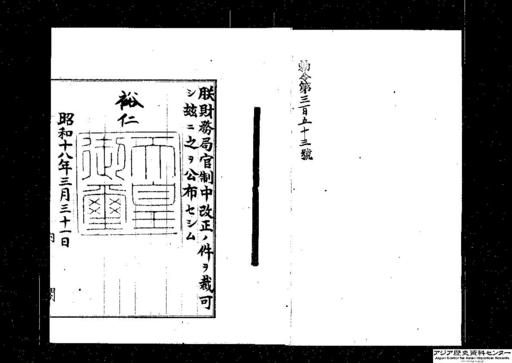 勅令第三百五十三號
朕財務局官制中改正ノ件ヲ裁可
シ玆ニ之ヲ公布セシム
裕仁
天皇御璽
昭和十八年三月三十一日
内閣
アジア歴史資料センター
Japan Center for Asian Historical Records